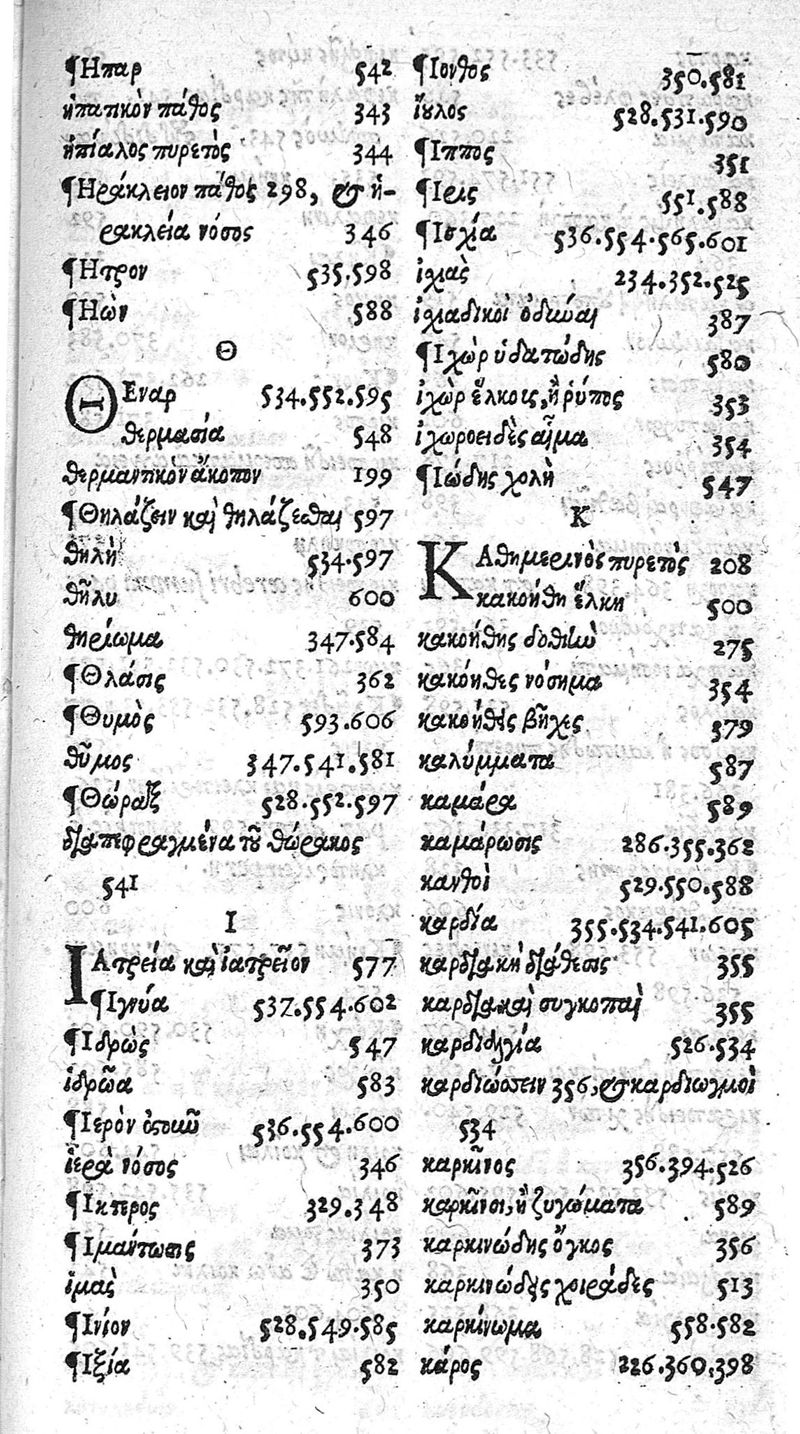 ¶Ηπαρ 542
ἡπατικὸν πάθος 343
ἠπίαλος πυρετὸς 344
¶Ηράκλειον πάθος 298, & ἡ-
ρακλεία νόσος 346
¶Ητρον 535.598
¶Ηὼν 588
Θ
ΘΕναρ 534.552.595
θερμασία 548
θερμαντικὸν ἄκοπον 199
¶Θηλάζειν καὶ θηλάζεσθαι 597
θηλὴ 534.597
θῆλυ 600
θηρίωμα 347.584
¶Θλάσις 362
¶Θυμὸς 593.606
θῦμος 347.541.581
¶Θώραξ 528.552.597
διαπεφραγμένα τοῦ θώρακος
541
Ι
ΙΑτρεία καὶ ἰατρεῖον 577
¶Ιγνύα 537.554.602
¶Ιδρὼς 547
ἱδρῶα 583
¶Ιερὸν ὀστοῦν 536.554.600
ἱερὰ νόσος 346
¶Ικτερος 329.348
¶Ιμάντωσις 373
ἱμὰς 350
¶Ινίον 528.549.585
¶Ιξία 582
¶Ιονθος 350.581
ἴουλος 528.531.590
¶Ιππος 351
¶Ιρις 551.588
¶Ισχία 536.554.565.601
ἰχιὰς 234.352.525
ἰχιαδικοὶ ὀδύναι 387
¶Ιχὼρ ὑδατώδης 580
ἰχὼρ ἕλκοις, ἢ ῥύπος 353
ἰχωροειδὲς αἷμα 354
¶Ιώδης χολὴ 547
Κ
ΚΑθημερινὸς πυρετὸς 208
κακοήθη ἕλκη 500
κακοήθης δοθιὼ 275
κακόηθες νόσημα 354
κακοήθεις βῆχες 379
καλύμματα 587
καμάρα 589
καμάρωσις 286.355.362
κανθοὶ 529.550.588
καρδία 355.534.541.605
καρδιακὴ διάθεσις 355
καρδιακαὶ συγκοπαὶ 355
καρδιαλγία 526.534
καρδιώσσειν 356, & καρδιωγμοὶ
534
καρκῖνος 356.394.526
καρκῖνοι, ἢ ζυγώματα 589
καρκινώδης ὄγκος 356
καρκινώδεις χοιράδες 513
καρκίνωμα 558.582
κάρος 226.360.398